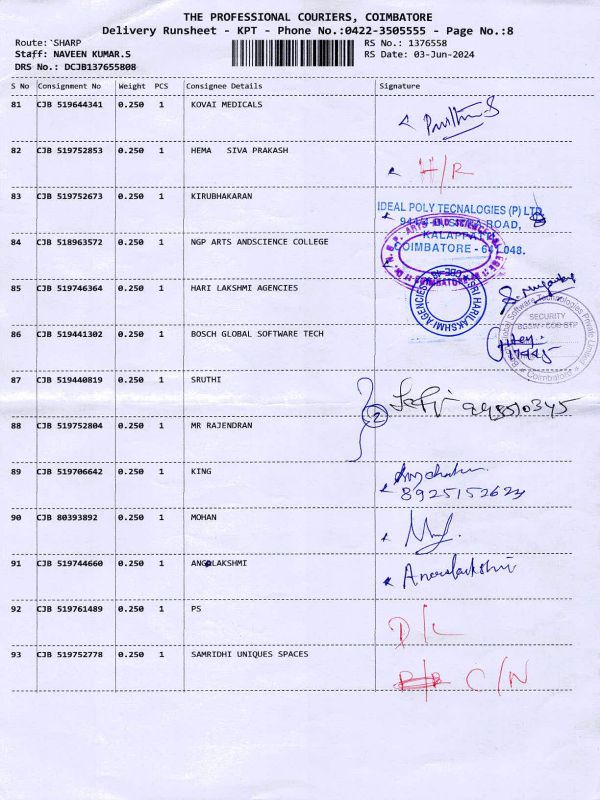 THE PROFESSIONAL COURIERS, COIMBATORE
Delivery Runsheet - KPT - Phone No.:0422-3505555 - Page No.:8
Route:`SHARP
RS No.: 1376558
Staff: NAVEEN KUMAR.S
RS Date: 03-Jun-2024
DRS No.: DCJB137655808
S No Consignment No Weight PCS Consignee Details Signature
81 CJB 519644341 0.250 1 KOVAI MEDICALS
82 CJB 519752853 0.250 1 HEMA SIVA PRAKASH H/R
83 CJB 519752673 0.250 1 KIRUBHAKARAN
IDEAL POLY TECNALOGIES (P) LTD
ROAD,
KALAPPATTI
COIMBATORE - 641 048.
84 CJB 518963572 0.250 1 NGP ARTS ANDSCIENCE COLLEGE
85 CJB 519746364 0.250 1 HARI LAKSHMI AGENCIES
SRI HARILAKSHMI AGENCIES
86 CJB 519441302 0.250 1 BOSCH GLOBAL SOFTWARE TECH
Bosch Global Software Technologies Private Limited
SECURITY
Coimbatore
87 CJB 519440819 0.250 1 SRUTHI
2
88 CJB 519752804 0.250 1 MR RAJENDRAN
89 CJB 519706642 0.250 1 KING
90 CJB 80393892 0.250 1 MOHAN
91 CJB 519744660 0.250 1 ANGALAKSHMI
92 CJB 519761489 0.250 1 PS D/L
93 CJB 519752778 0.250 1 SAMRIDHI UNIQUES SPACES C/N